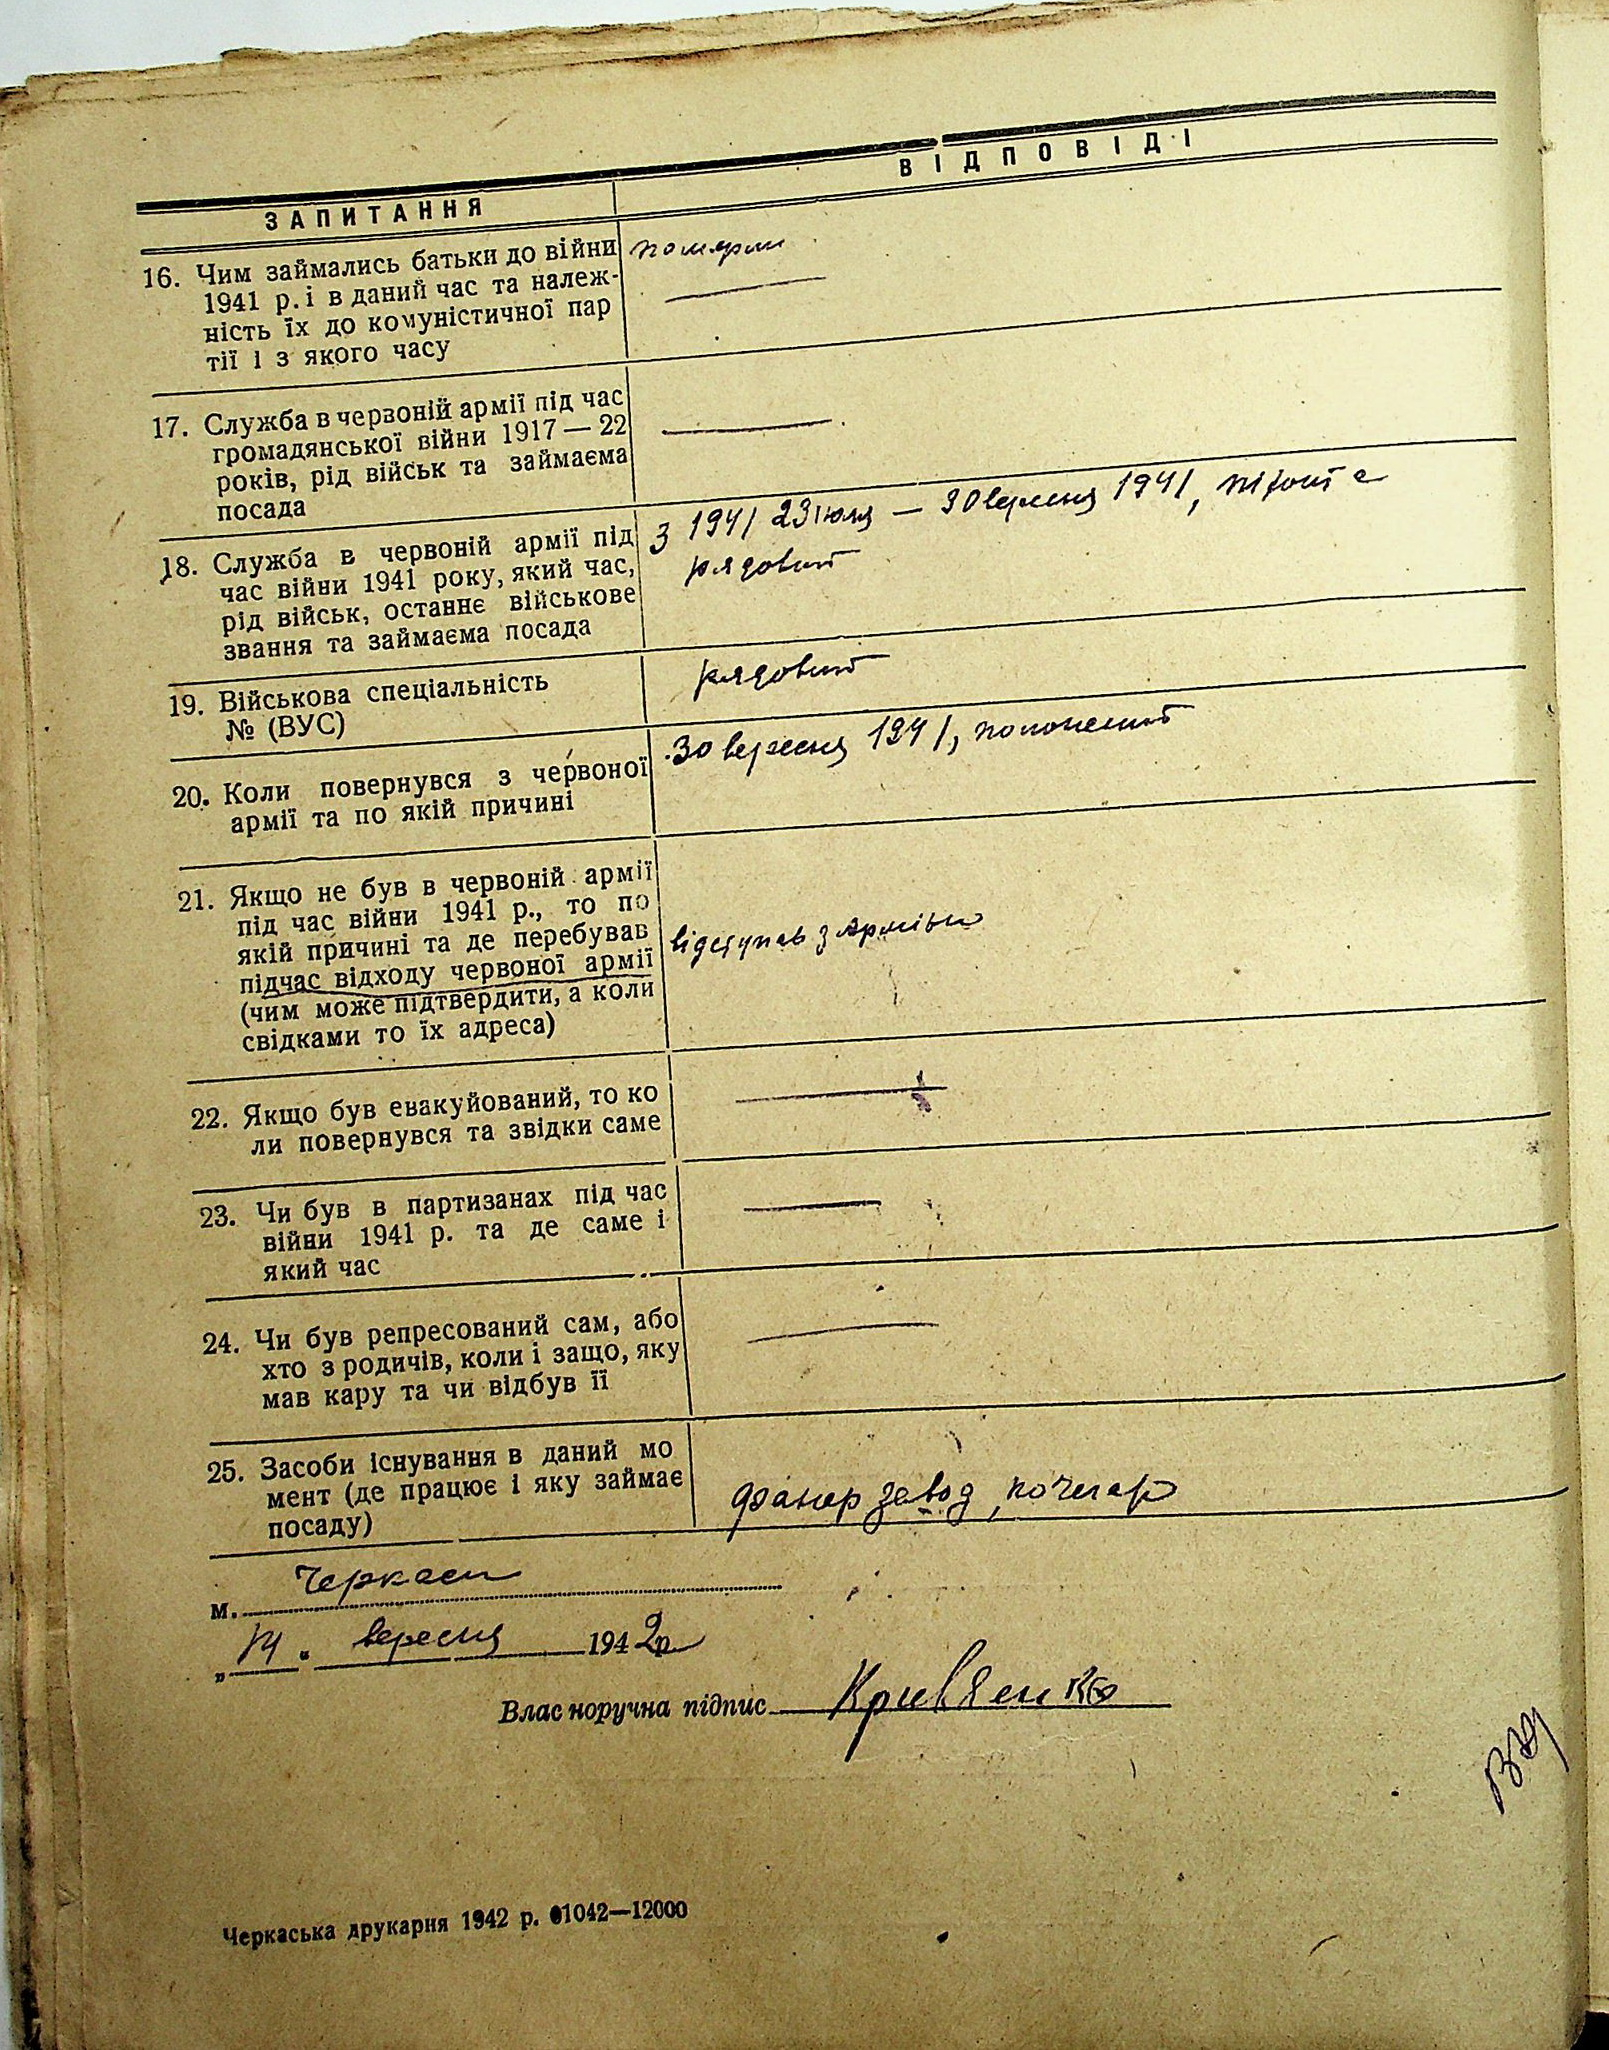 ЗАПИТАННЯ
ВІДПОВІДІ
16. Чим займались батьки до війни
1941 р. і в даний час та належ-
ність їх до комуністичної пар
тії і з якого часу
померли
17. Служба в червоній армії під час
громадянської війни 1917—22
років, рід військ та займаєма
посада
18. Служба в червоній армії під
час війни 1941 року, який час,
рід військ, останнє військове
звання та займаєма посада
З 1941 23 июля — 30 вересня 1941,
рядовий
19. Військова спеціальність
№ (ВУС)
рядовий
20. Коли повернувся з червоної
армії та по якій причині
30 вересня 1941, полонений
21. Якщо не був в червоній армії
під час війни 1941 р., то по
якій причині та де перебував
підчас відходу червоної армії
(чим може підтвердити, а коли
свідками то їх адреса)
відступав з Армією
22. Якщо був евакуйований, то ко
ли повернувся та звідки саме
23. Чи був в партизанах під час
війни 1941 р. та де саме і
який час
24. Чи був репресований сам, або
хто з родичів, коли і защо, яку
мав кару та чи відбув її
25. Засоби існування в даний мо
мент (де працює і яку займає
посаду)
Фанер завод, кочегар
м. Черкаси
„14“ вересня 1942р
Власноручна підпис Кривʼенко
Черкаська друкарня 1942 р. 01042—12000